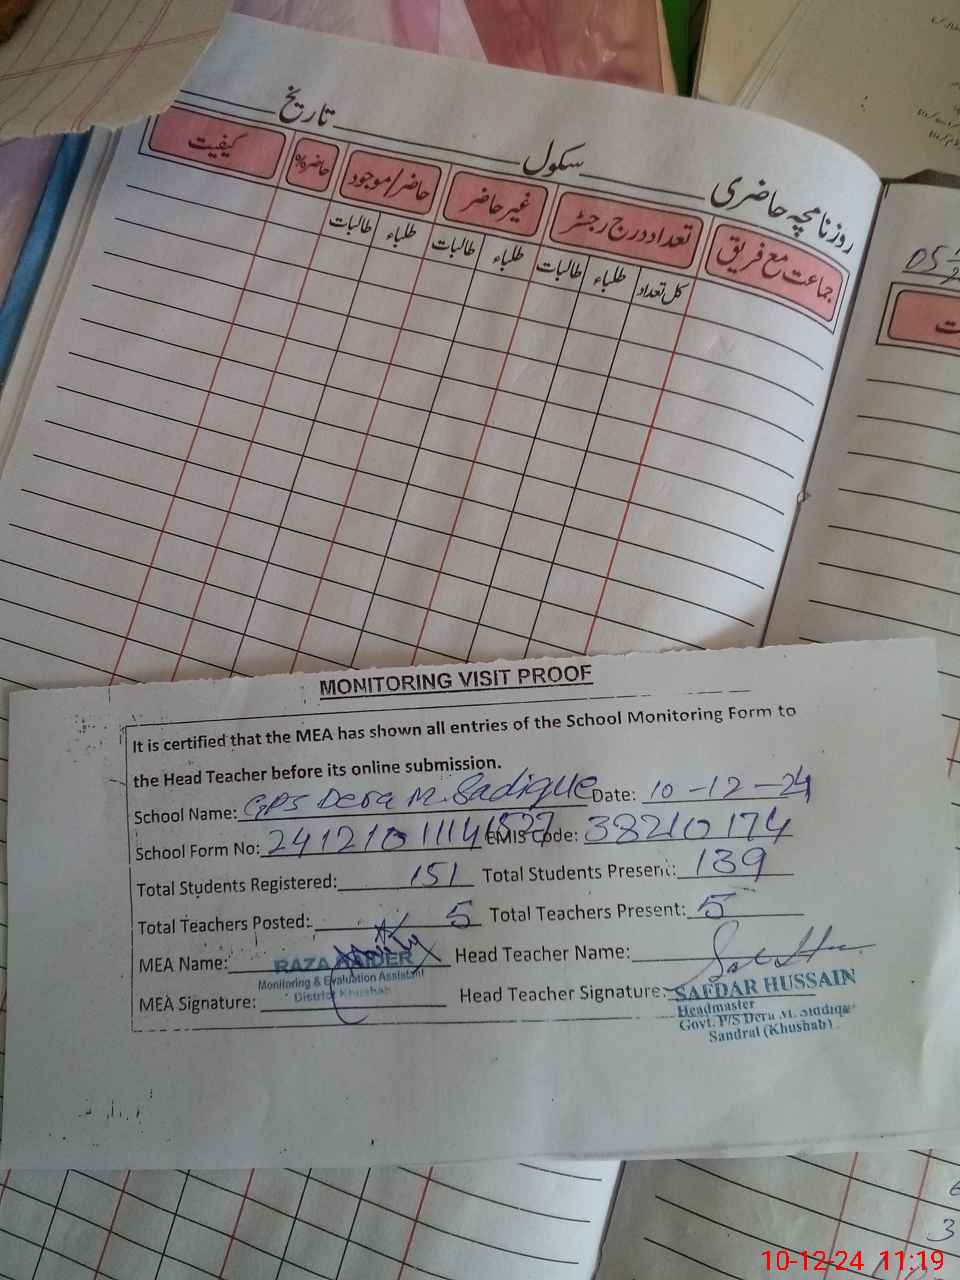 روزنامچہ حاضری ـــــــــ سکول ـــــــــ تاریخ ـــــــــ
جماعت مع فریق تعداد درج رجسٹر غیر حاضر حاضر/موجود حاضرہ% کیفیت
کل تعداد طلباء طالبات طلباء طالبات طلباء طالبات
MONITORING VISIT PROOF
It is certified that the MEA has shown all entries of the School Monitoring Form to
the Head Teacher before its online submission.
School Name: GPS Dera M. Sadique Date: 10-12-24
School Form No: EMIS Code: 38210174
Total Students Registered: 151 Total Students Present: 139
Total Teachers Posted: 5 Total Teachers Present: 5
MEA Name: RAZA HAIDER Head Teacher Name:
Monitoring & Evaluation Assistant
District Khushab
MEA Signature: Head Teacher Signature: SAFDAR HUSSAIN
Headmaster
Govt. P/S Dera M. Siddique
Sandral (Khushab)
10-12-24 11:19